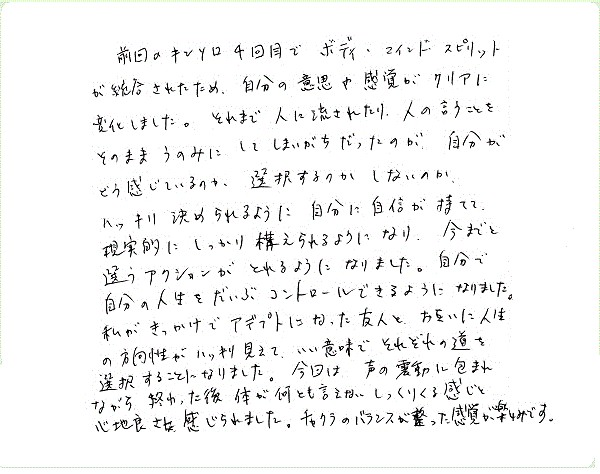 前回のキンソロ4回目で ボディ・マインド スピリット
が統合されたため、自分の意思や感覚がクリアに
変化しました。それまで人に流されたり、人の言うことを
そのままうのみにしてしまいがちだったのが、自分が
どう感じているのか、選択するのかしないのか、
ハッキリ決められるように自分に自信が持てて、
現実的にしっかり構えられるようになり、今までと
違うアクションがとれるようになりました。自分で
自分の人生をだいぶコントロールできるようになりました。
私がきっかけでアデプトになった友人と、お互いに人生
の方向性がハッキリ見えて、いい意味でそれぞれの道を
選択することになりました。今回は声の震動に包まれ
ながら終わった後体が何とも言えないしっくりくる感じと
心地良さを感じられました。チャクラのバランスが整った感覚が楽しみです。